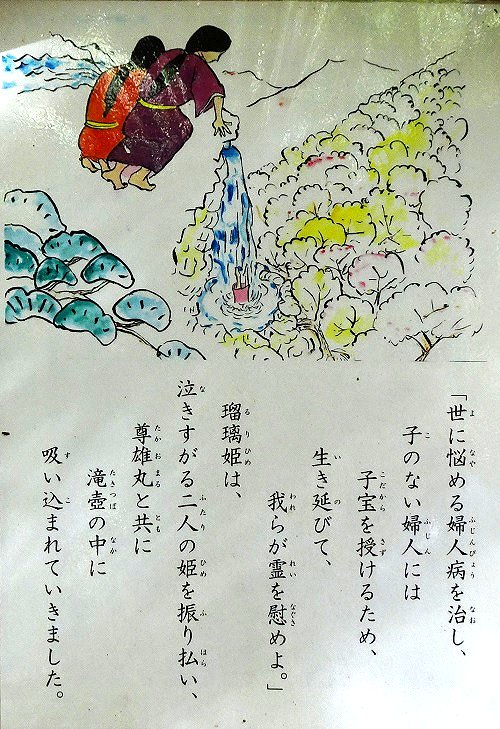 「世に悩める婦人病を治し、
子のない婦人には
子宝を授けるため、
生き延びて、
我らが霊を慰めよ。」
瑠璃姫は、
泣きすがる二人の姫を振り払い、
尊雄丸と共に
滝壺の中に
吸い込まれていきました。